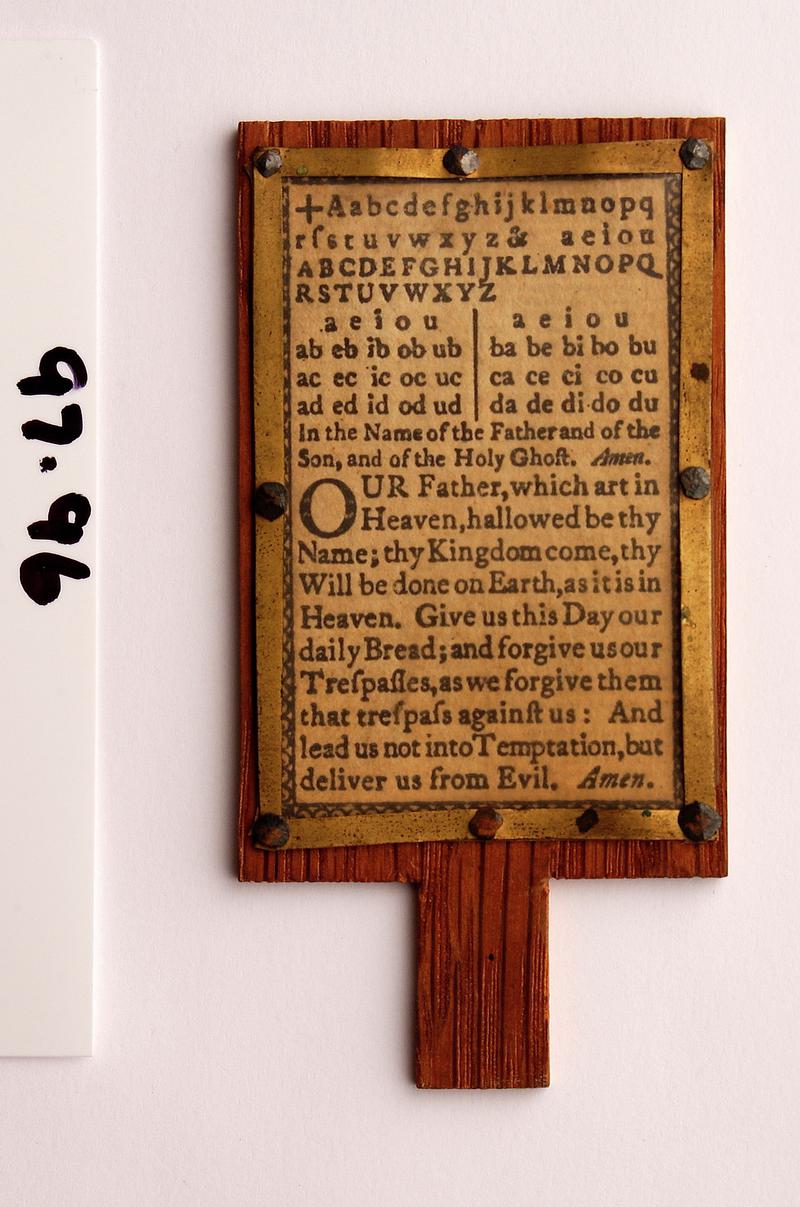 +Aabcdefghijklmnopq
rſstuvwxyz& aeiou
ABCDEFGHIJKLMNOPQ
RSTUVWXYZ
a e i o u | a e i o u
ab eb ib ob ub | ba be bi bo bu
ac ec ic oc uc | ca ce ci co cu
ad ed id od ud | da de di do du
In the Name of the Father and of the
Son, and of the Holy Ghoſt. Amen.
OUR Father, which art in
Heaven, hallowed be thy
Name; thy Kingdom come, thy
Will be done on Earth, as it is in
Heaven. Give us this Day our
daily Bread; and forgive us our
Treſpaſſes, as we forgive them
that treſpaſs againſt us: And
lead us not into Temptation, but
deliver us from Evil. Amen.
97.96